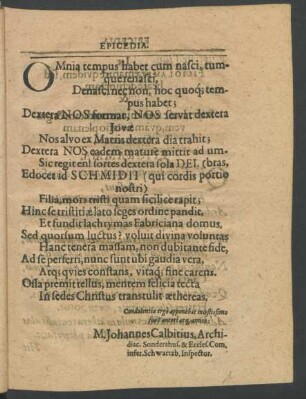 EPICEDIA.
OMnia tempus habet cum nasci, tum-
que renasci,
Denasci nec non, hoc quoq; tem-
pus habet;
Dextera NOS format, NOS servat dextera
Jovæ
Nos alvo ex Matris dextera dia trahit;
Dextera NOS eadem maturè mittit ad um-
Sic regit en! fortes dextera sola DEI. (bras,
Edocet id SCHMIDII (qui cordis portio
nostri)
Filia, mors tristi quam sicilice rapit;
Hinc se tristitiæ lato seges ordine pandit,
Et fundit lachrymas Fabriciana domus.
Sed quorsum luctus? voluit divina voluntas
Hanc teneram massam, non dubitante fide,
Ad se perferri, nunc sunt ubi gaudia vera,
Atq; qvies constans, vitaq; fine carens.
Ossa premit tellus, mentem felicia tecta
In sedes Christus transtulit æthereas.
Condolentiæ ergò apponebat mœstissimo
M. Johannes Calbitius, Archi-
diac. Sondershus. & Eccles. Com.
infer. Schwartzb. Inspector.